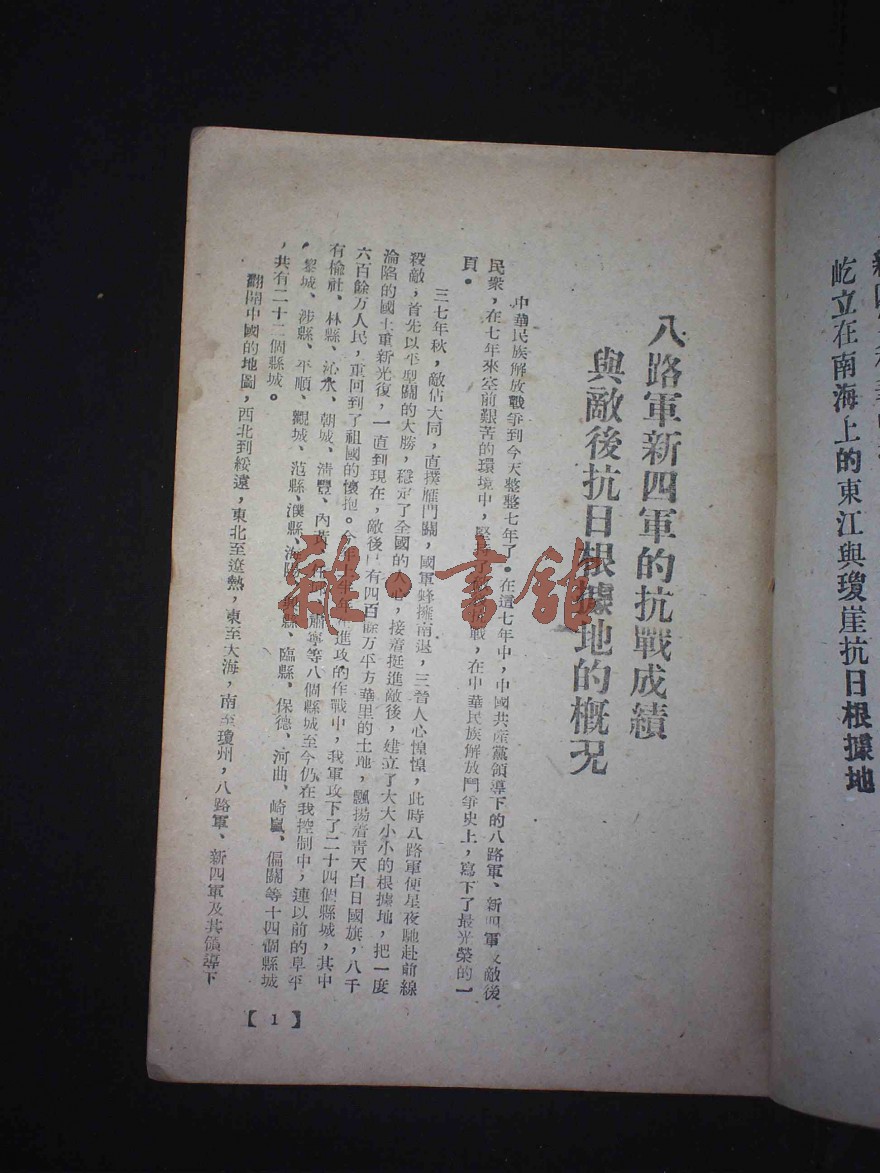 屹立在南海上的東江與瓊崖抗日根據地
八路軍新四軍的抗戰成績
與敵後抗日根據地的概況
中華民族解放戰爭到今天整整七年了。在這七年中,中國共產黨領導下的八路軍、新四軍及敵後
民衆,在七年來空前艱苦的環境中,堅持了抗戰,在中華民族解放鬥爭史上,寫下了最光榮的一
頁。
三七年秋,敵佔大同,直撲雁門關,國軍蜂擁南退,三晉人心惶惶,此時八路軍便星夜馳赴前線
殺敵,首先以平型關的大勝,穩定了全國的人心,接着挺進敵後,建立了大大小小的根據地,把一度
淪陷的國土重新光復,一直到現在,敵後有四百餘万平方華里的土地,飄揚着青天白日國旗,八千
六百餘万人民,重回到了祖國的懷抱。今年進攻的作戰中,我軍攻下了二十四個縣城,其中
有榆社、林縣、沁水、朝城、清豐、內黃、肅寧等八個縣城至今仍在我控制中,連以前的阜平
、黎城、涉縣、平順、觀城、范縣、濮縣、興縣、臨縣、保德、河曲、崎嵐、偏關等十四個縣城
,共有二十二個縣城。
翻開中國的地圖,西北到綏遠,東北至遼熱,東至大海,南至瓊州,八路軍、新四軍及其領導下
【1】
雜·書館